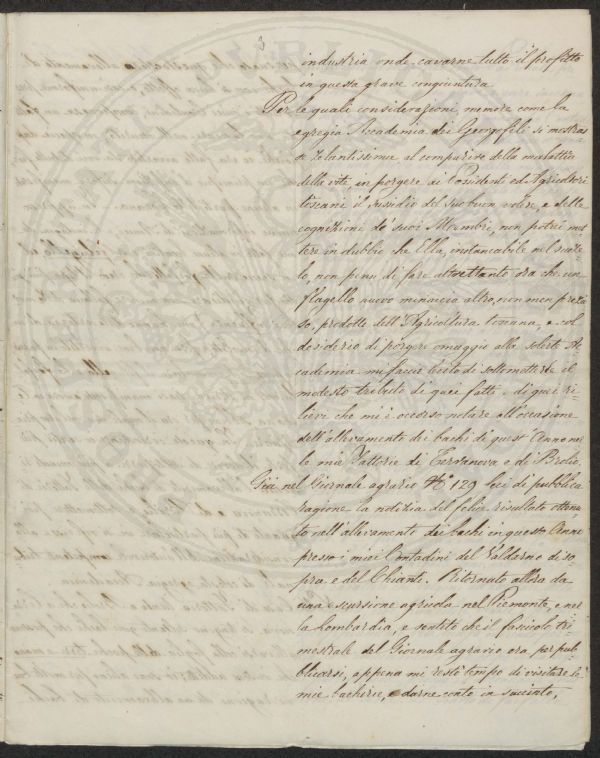 3
industria onde cavarne tutto il profitto
in questa grave congiuntura.
Per le quali considerazioni, memore come la
egregia Accademia dei Georgofili si mostras=
se zelantissima al comparire della malattia
della vite, in porgere ai Possidenti ed Agricoltori
toscani il sussidio del suo buon volere, e delle
cognizioni de' suoi Membri, non potrei met
tere in dubbio che Ella, instancabile nel suo ze=
lo, non pensi di fare altrettanto ora che un
flagello nuovo minaccia altro, non men prezio
so, prodotto dell'Agricoltura toscana, e col
desiderio di porgere omaggio alla solerte Ac
cademia mi faccio lecito di sottometterle il
modesto tributo di quei fatti e di quei ri=
lievi che mi è occorso notare all'occasione
dell'allevamento dei bachi di quest'Anno nel
le mie Fattorie di Terranova e di Brolio.
Già nel Giornale agrario N.º 129 feci di pubblica
ragione la notizia del felice risultato ottenu
to nell'allevamento dei bachi in questo Anno
presso i miei Contadini del Valdarno di so=
pra e del Chianti. Ritornato allora da
una escursione agricola nel Piemonte, e nel
la Lombardia, e sentito che il fascicolo tri=
mestrale del Giornale agrario era per pub=
blicarsi, appena mi restò tempo di visitare le
mie bacherie, e darne conto in succinto,